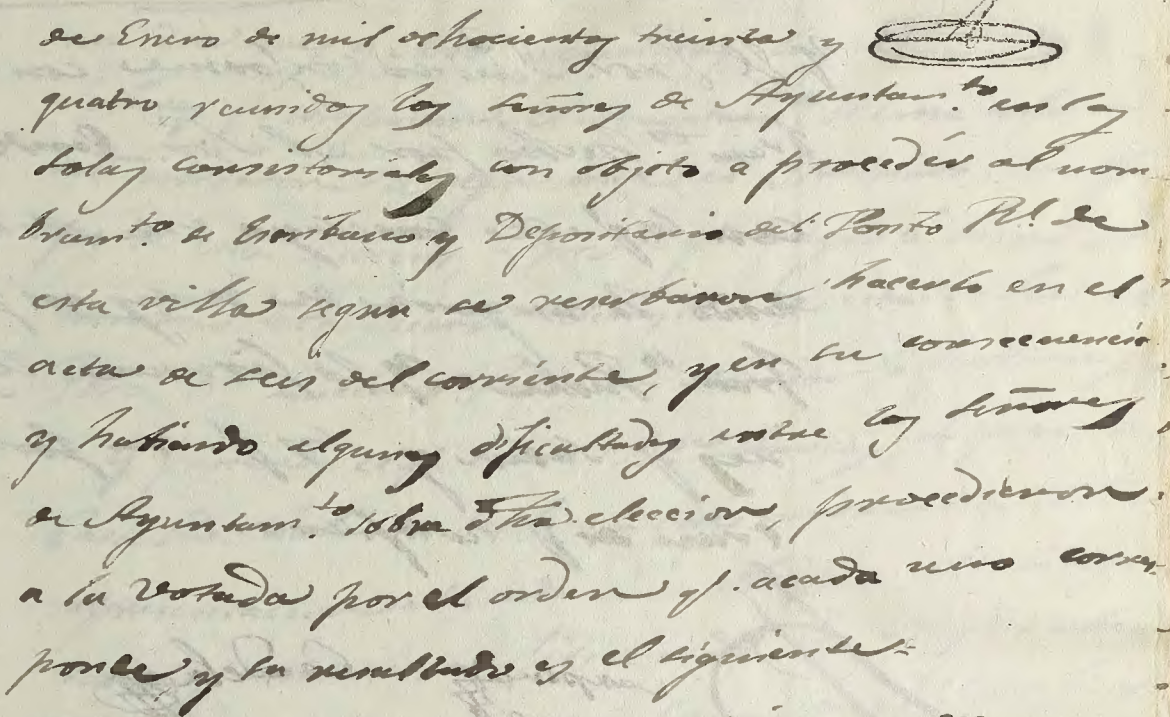 de Enero de mil ochocientos treinta y
quatro, reunidos los señores de Ayuntam.to en las
Salas consistoriales con objeto a procedér al nom
bram.to de Escribano y Depositario del Posito Rl. de
esta villa segun se reserbaron hacerlo en el
acta de seis del corriente, y en su consecuencia
y habiendo algunas dificultades entre los señores
de Ayuntam.to sobre dha. eleccion, procedieron
a la votada por el orden q.e acada uno corres-
ponde, y su resultado es el siguiente=